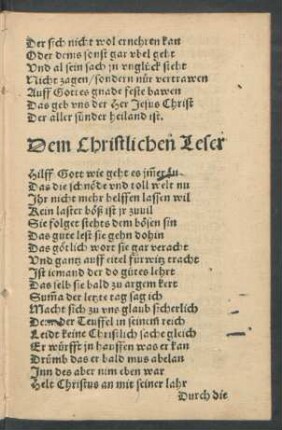 Der sich nicht wol ernehren kan
Oder dems sonst gar vbel geht
Vnd al sein sach jn vnglück steht
Nicht zagen/sondern nür vertrawen
Auff Gottes gnade feste bawen
Das geb vns der Her Jesus Christ
Der aller sünder heiland ist.
Dem Christlichen Leser
Hilff Gott wie geht es jm̃er zu
Das die schnöde vnd toll welt nu
Ihr nicht mehr helffen lassen wil
Kein laster böß ist jr zuuil
Sie folget stehts dem bösen sin
Das gute lest sie gehn dohin
Das götlich wort sie gar veracht
Vnd gantz auff eitel fürwitz tracht
Ist jemand der do gutes lehrt
Das selb sie bald zu argem kert
Sum̃a der letzte tag sag ich
Macht sich zu vns glaub sicherlich
Dem der Teuffel in seinem reich
Leidt keine Christlich sache gleich
Er würfft jn hauffen was er kan
Drümb das er bald mus abelan
Inn des aber nim eben war
Helt Christus an mit seiner lahr
Durch die